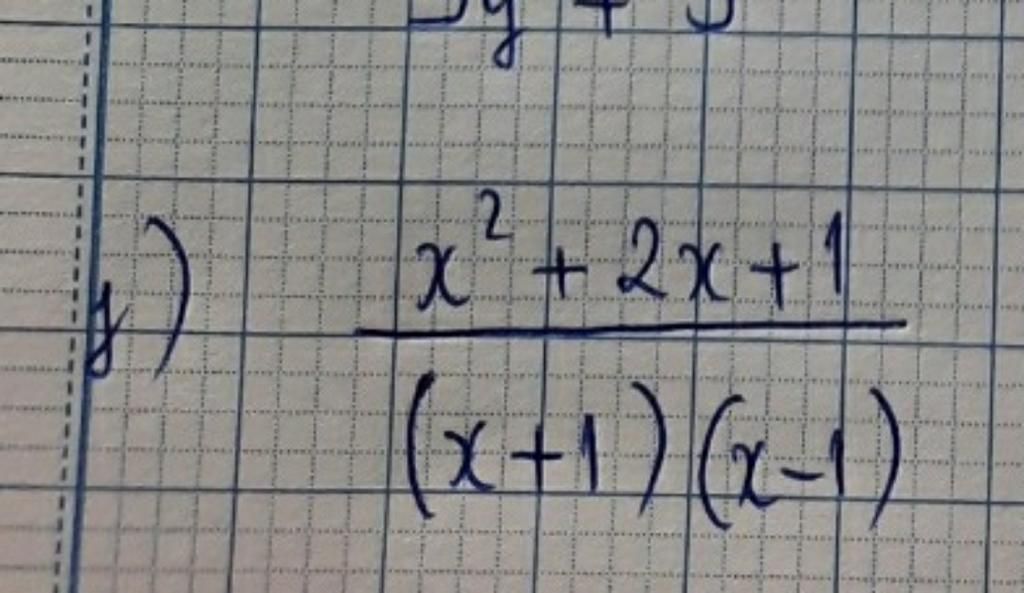 y)
x² + 2x + 1
(x + 1) (x - 1)